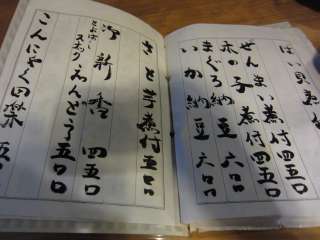 ばい貝煮付
ぜんまい煮付 四五〇
木の子煮付 四五〇
まぐろ納豆 六〇〇
いか納豆 六〇〇
さと芋煮付 五〇〇
冷新香 四五〇
スナックえんどう 五五〇
こんにゃく田楽